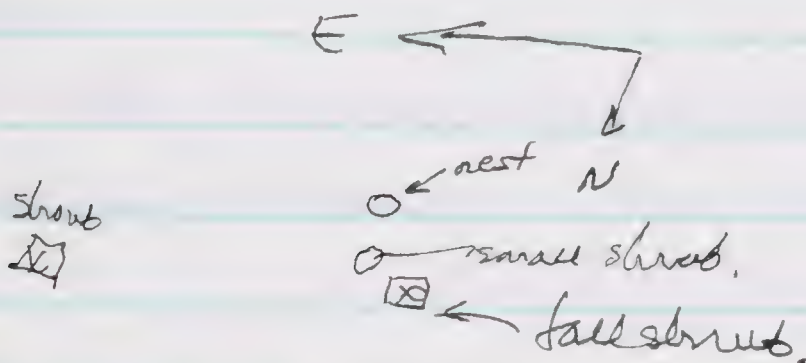 E
nest
N
shrub
small shrub.
tall shrub.